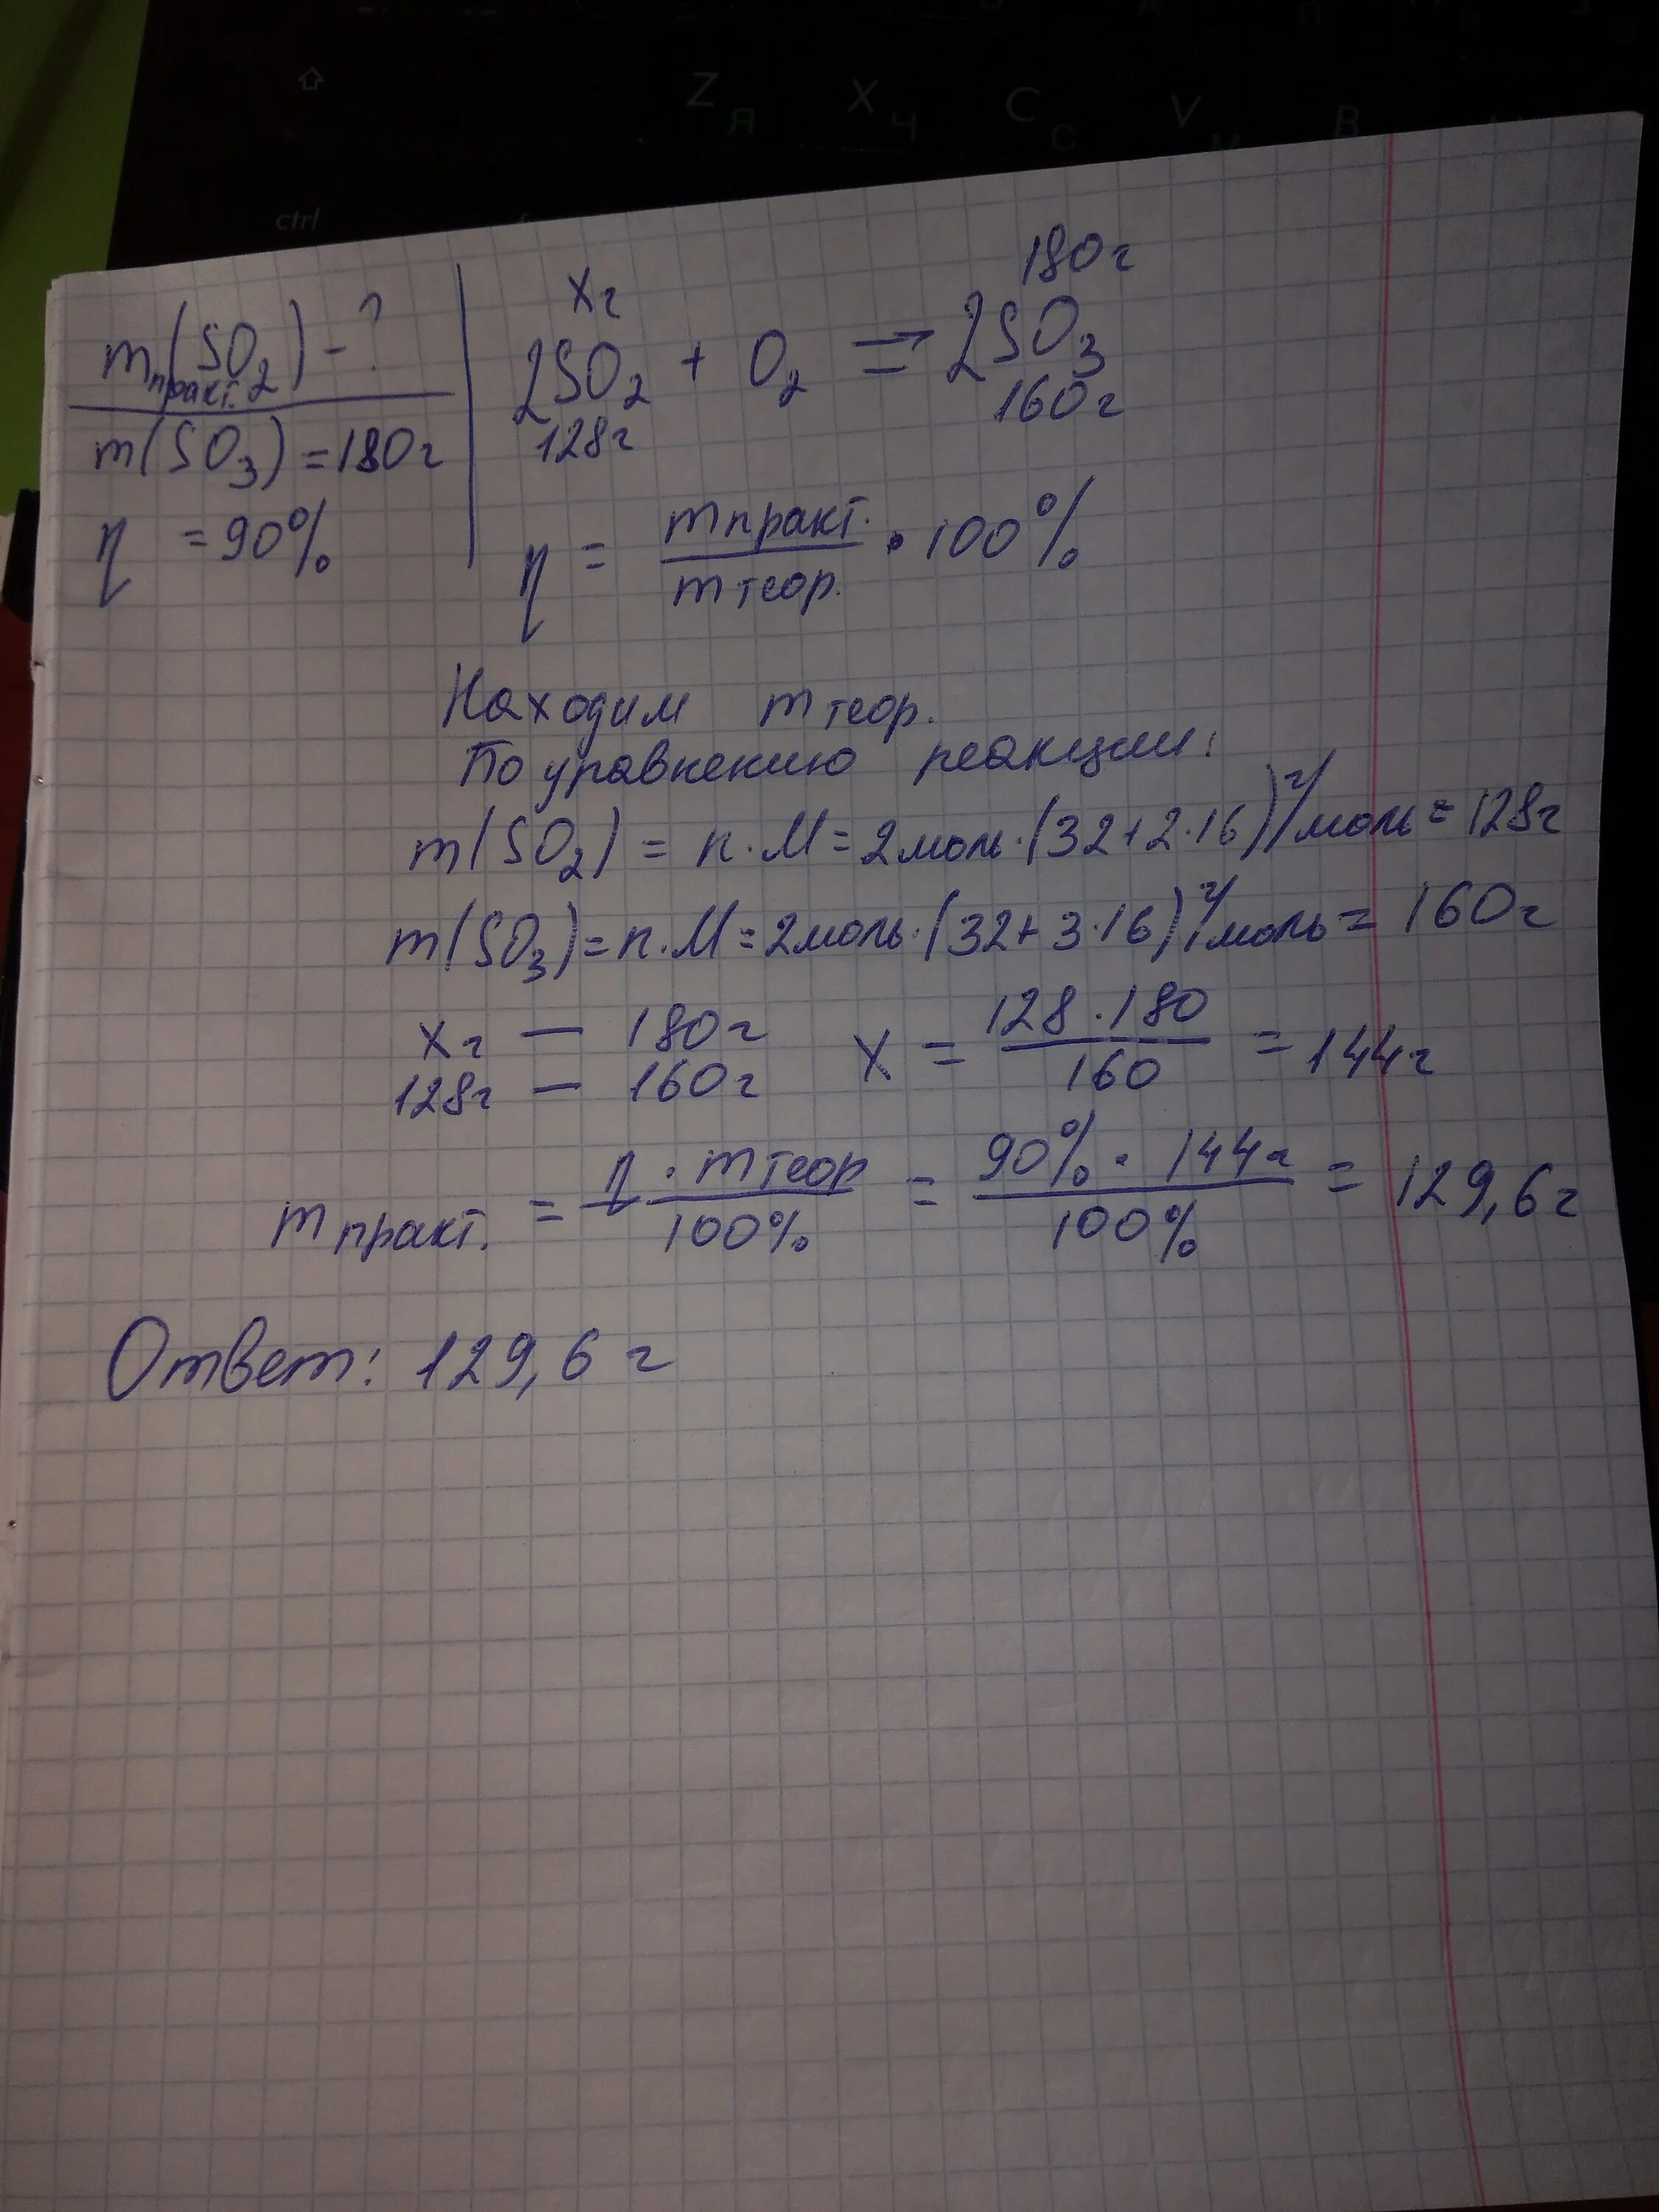 Z Я X Ч C С V М B
ctrl
m практ.(SO2) - ?
m(SO3) = 180г
η = 90%
xг 180г
2SO2 + O2 ⇒ 2SO3
128г 160г
η = mпракт. / mтеор. · 100%
Находим mтеор.
По уравнению реакции:
m(SO2) = n·M = 2моль·(32+2·16)г/моль = 128г
m(SO3) = n·M = 2моль·(32+3·16)г/моль = 160г
xг — 180г x = 128·180 / 160 = 144г
128г — 160г
mпракт. = η·mтеор / 100% = 90%·144г / 100% = 129,6г
Ответ: 129,6 г